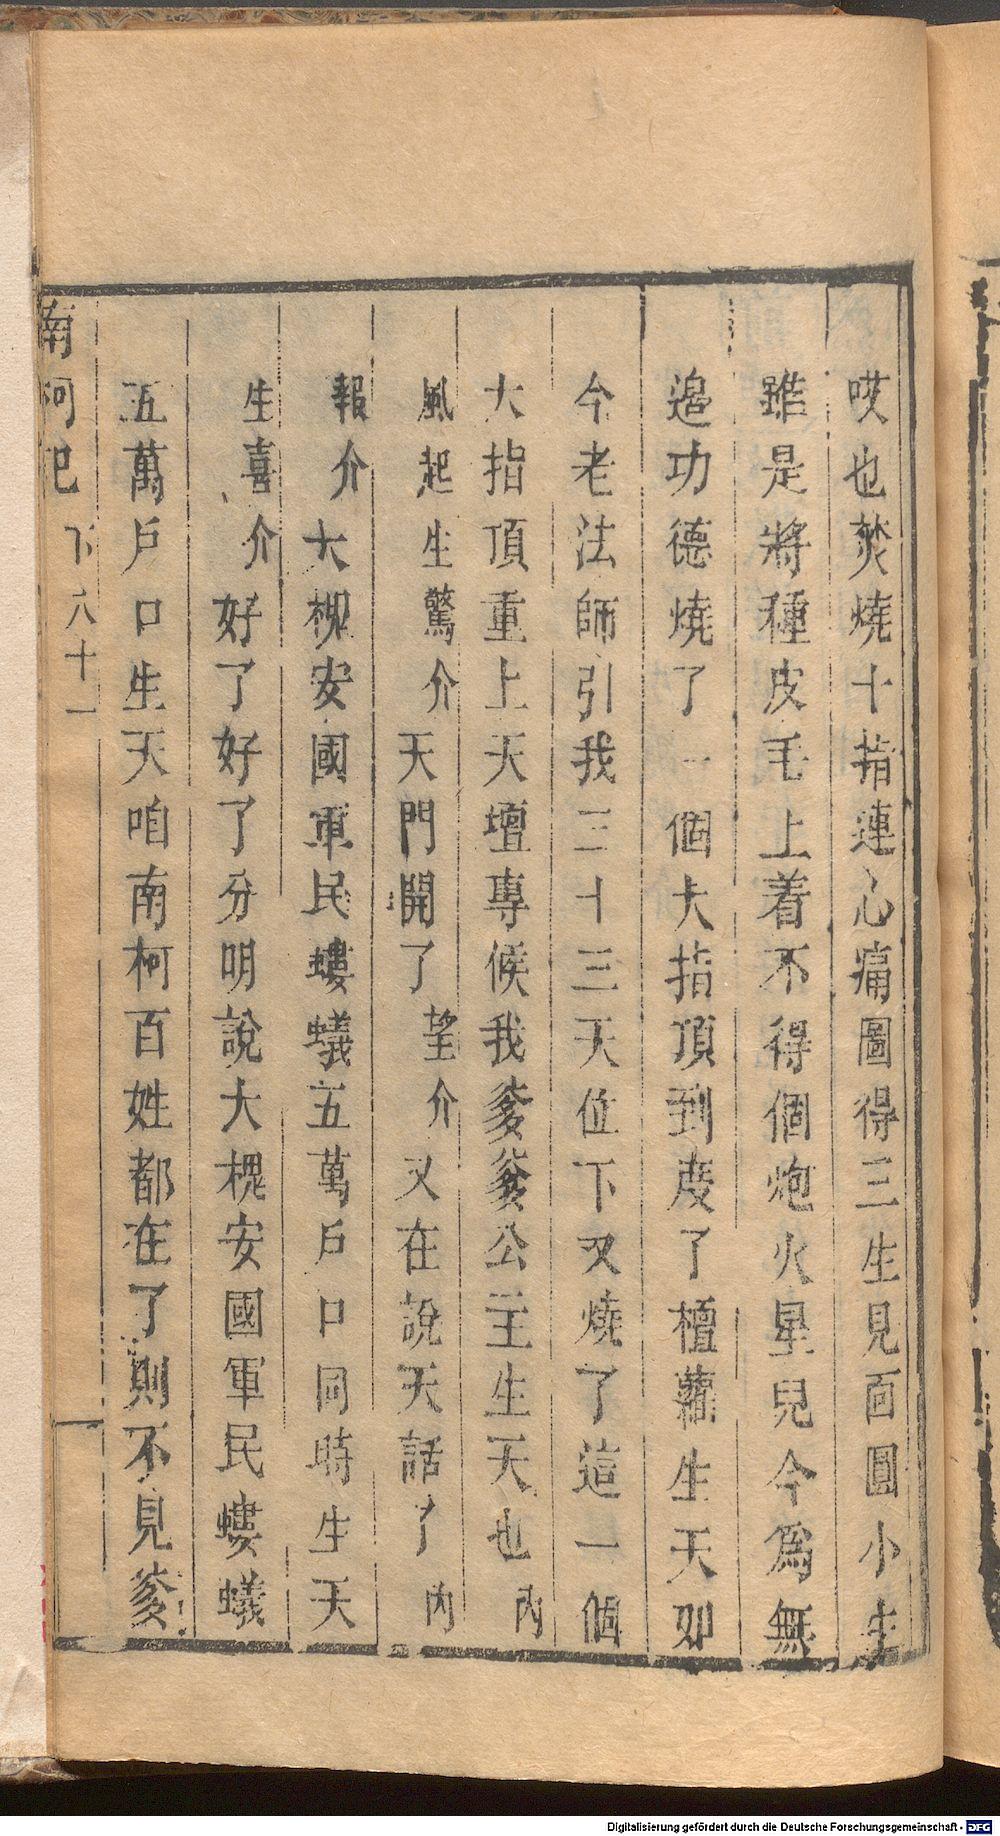 哎也焚燒十指連心痛圖得三生見面圓小生
雖是將種皮毛上着不得個炮火星兒今爲無
邉功德燒了一個大指頂到度了檀蘿生天如
今老法師引我三十三天位下又燒了這一個
大指頂重上天壇專候我爹爹公主生天也內
風起生驚介天門開了望介又在說天話了內
報介大槐安國軍民螻蟻五萬戶口同時生天
生喜介好了好了分明說大槐安國軍民螻蟻
五萬戶口生天咱南柯百姓都在了則不見爹
南柯記 下 六十一
Digitalisierung gefördert durch die Deutsche Forschungsgemeinschaft - DFG